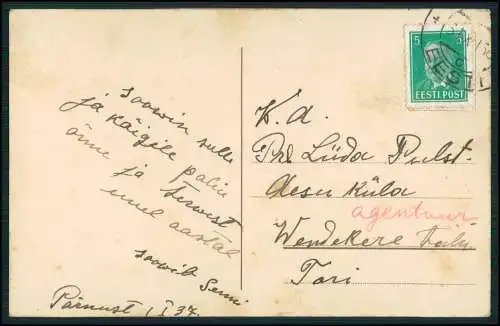 soowin sulle
ja käigile palju
õnne ja terwest
uuel aastal
soowib Senni
Pärnust 1 I 37.
5 5
EESTI POST
EESTI
K. a.
Prl Lüda Pulst.
asu küla
agentuur
Wendekere talu
Tori